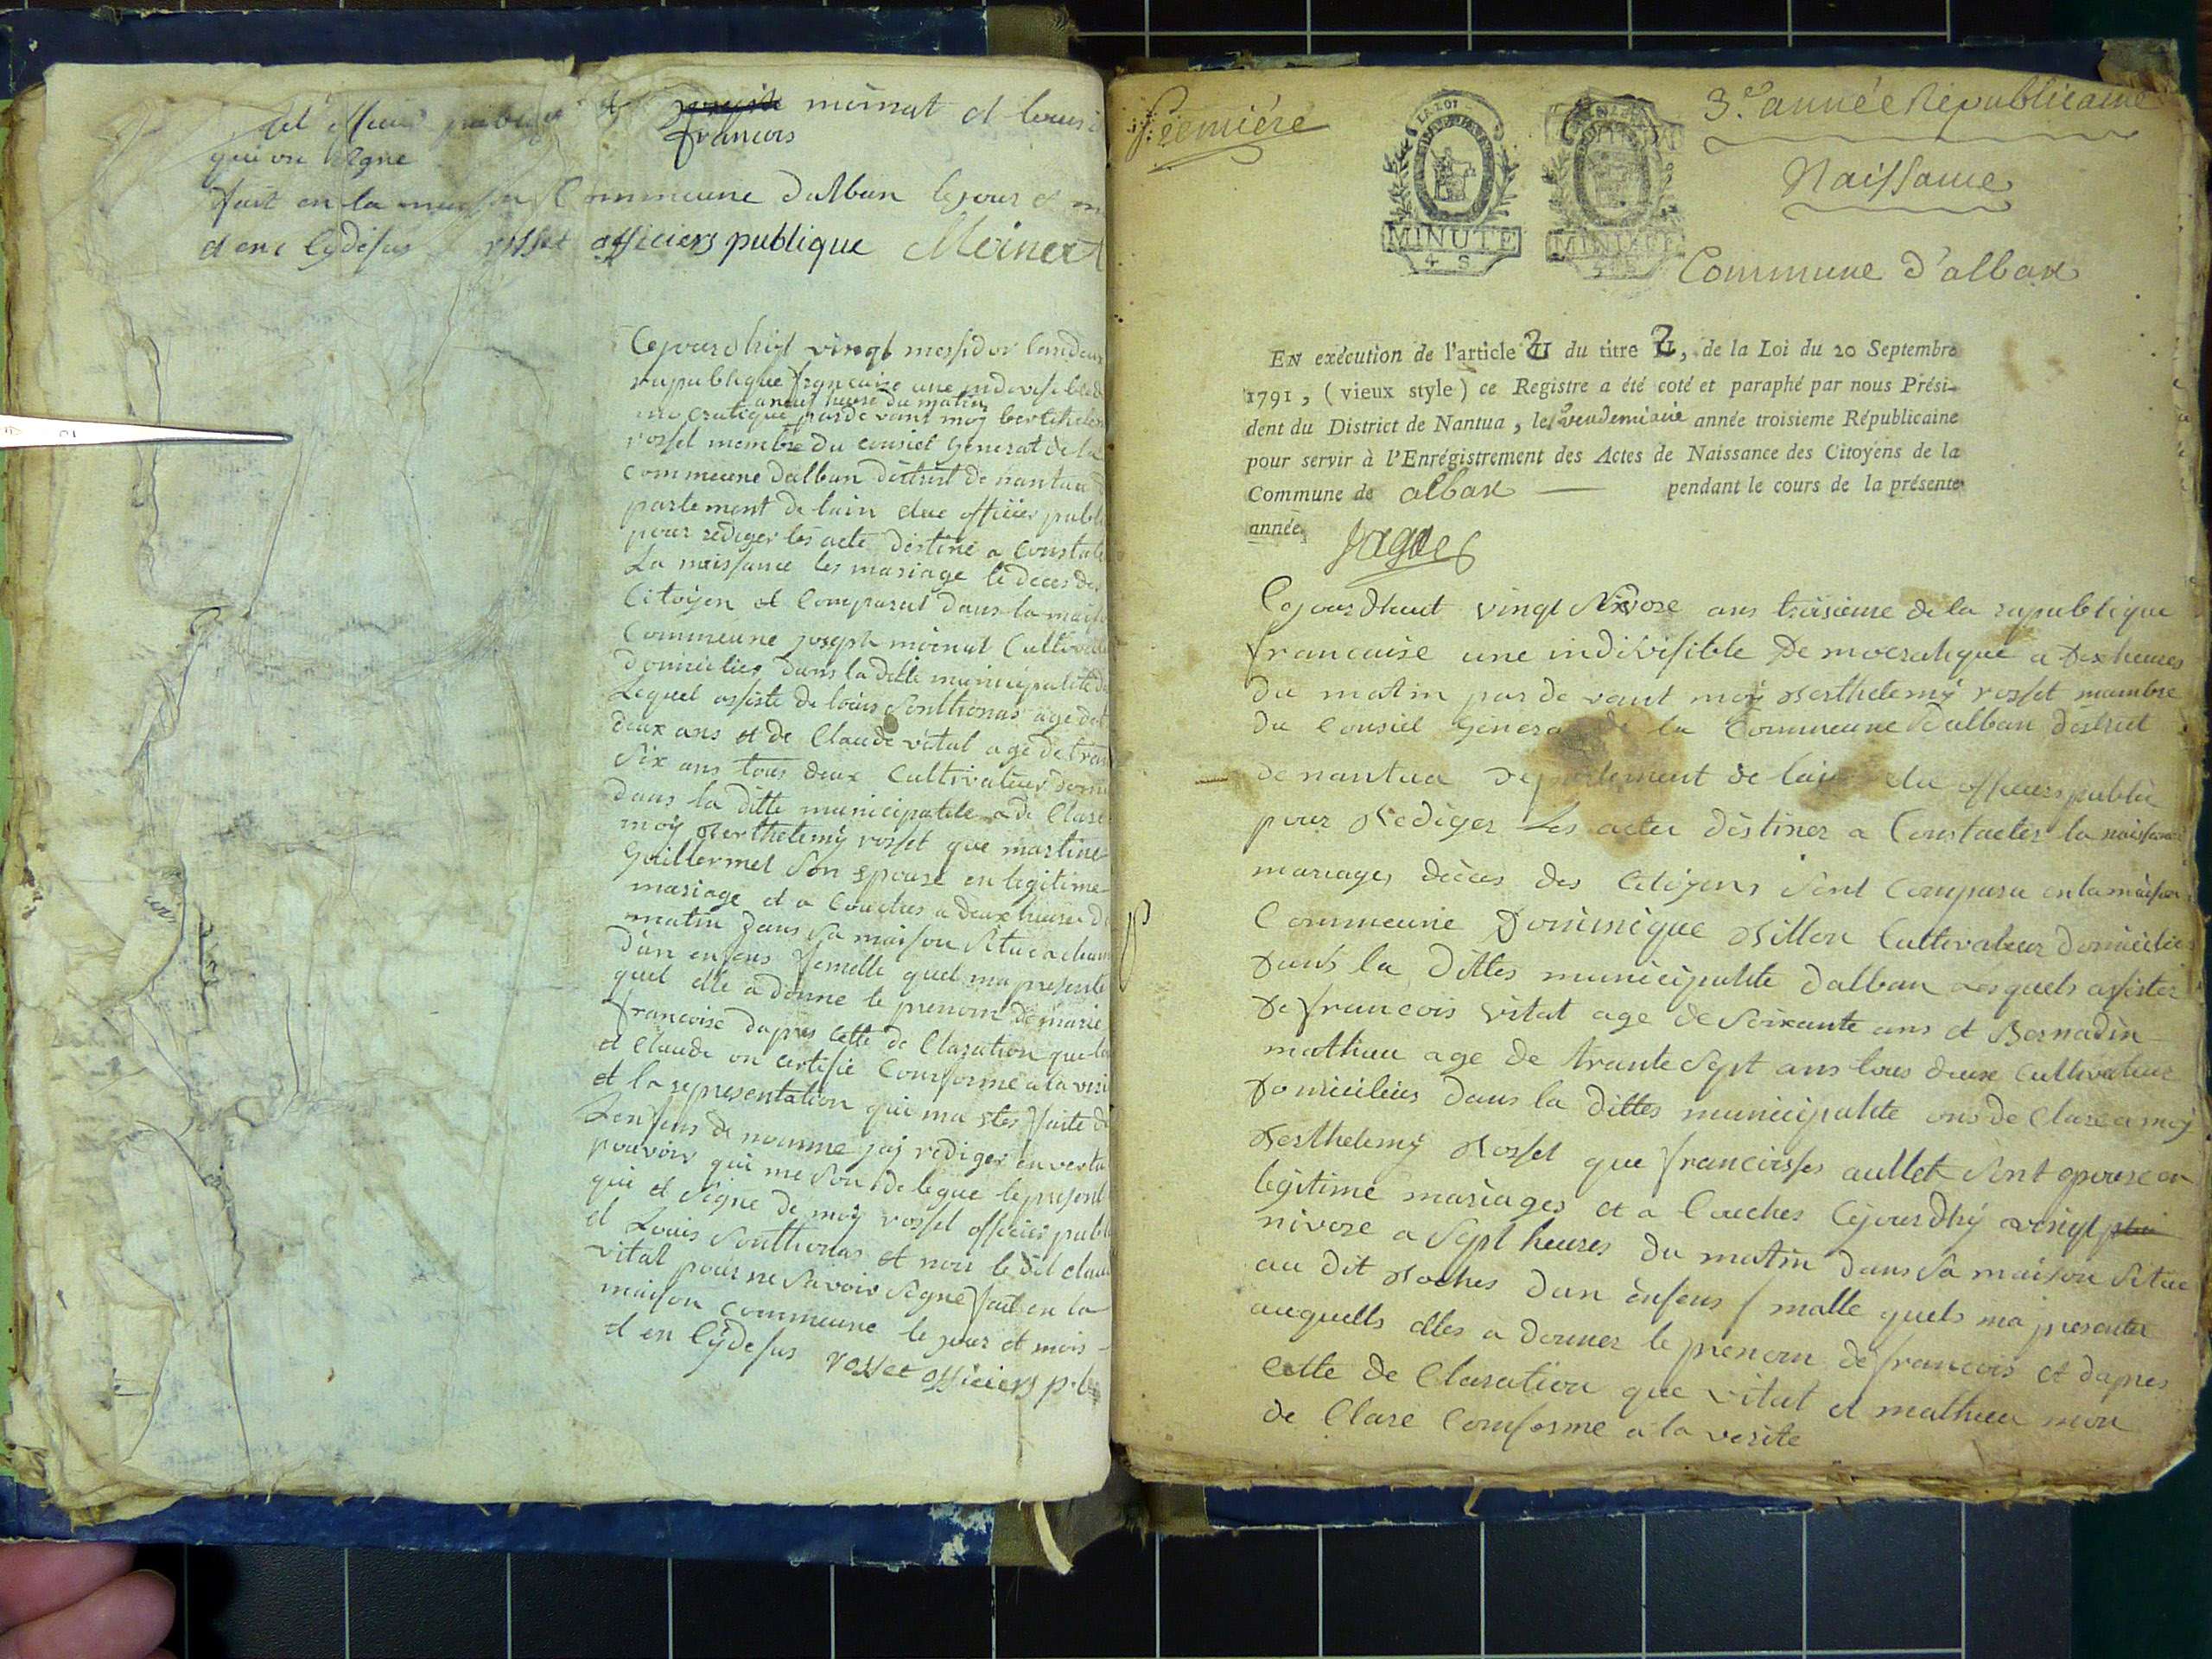 dit officier public et joseph moinat et louis
francois
qui on signe
fait en la maison Commeune dalban le jour et m
et enc lydesus rosset officiers publique Moinat
Cejourdhuy vingt messidor landeux
rupublique francaise une indivisible de
aneuf heure du matin
mocratique pardevant moy berthelem
rosset membre du consiel general de la
commeune dalban district de nantua
partement de lain elue officier public
pour rediger les acte destiné a constate
La naissance les mariage le deces des
Citoyen et Comparut dans la maison
Commeune joseph moinat Cultivate
domicilies dans la ditte municipalité
Lequel assiste de louis Sonthonas age de
deux ans et de Claude vital age de trant
six ans tous deux Cultivateur domi
dans la ditte municipalite a de Clare
moy Berthelemy rosset que martine
Guillermet Son Epouse en legitime
mariage et a Couches a deux heures du
matin dans sa maison situe a
dun enfens femelle quel ma presente
quel elle a donne le prenom de marie
francoise dapres cette de Claration que
et Claude on certifie Conforme a la verit
et la representation qui ma etes faite de
Lenfens de nomme jay rediger en vertu
pouvoir qui me son delegue le present
qui et Signe de moy rosset officier publ
et Louis Sonthonas et non le dit claud
vital pour ne savoir Signe fait en la
maison commeune le jour et mois
et en lydesus rosset officiers pub
Premiére
3e année Républicaine
Naissance
LA LOI
MINUTE
4 S
MINUTE
Commune d'alban
EN exécution de l'article 2 du titre 2, de la Loi du 20 Septembre
1791, (vieux style) ce Registre a été coté et paraphé par nous Prési-
dent du District de Nantua, le vendemiaire année troisieme Républicaine
pour servir à l'Enrégistrement des Actes de Naissance des Citoyens de la
Commune de alban — pendant le cours de la présente
année.
Cejourdhuit vingt Nivose ans troisieme de la rupublique
francaise une indivisible Democratique a dix heures
du matin par de vant moy Berthelemy rosset mambre
du Consiel General de la Commeune Dalban district
de nantua departement de lain elu officiers public
pour Rediger Les actes destinez a Constacter la naissance
mariages décès des Citoyens Sont Comparu en la maison
Commeune Dominique Billon Cultivateur domicilies
dans la dittes municipalite dalban Lesquels assister
De francois vital age de Soixante ans et Bernadin
mathieu age de trante Sept ans tous deux Cultivateur
domiciliés dans la dittes municipalite ons de Clare a moy
Berthelemy Rosset que francoisses aullet Sont epouse en
legitime mariages et a Couches Cejourdhy vingt
nivose a Sept heures du matin dans Sa maison Situe
au dit Roches dun enfens malle quels ma presenter
auquells elles a donner le prenom de francois et dapres
Cette de Claration que vital et mathieu mon
de Clare Conforme a la verite